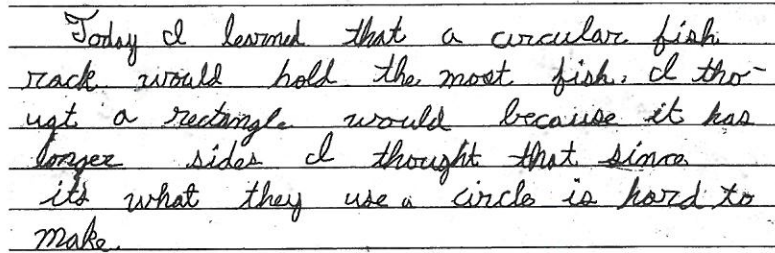 Today I learned that a circular fish
rack would hold the most fish. I tho-
ugt a rectangle would because it has
longer sides I thought that since
it's what they use a circle is hard to
make.